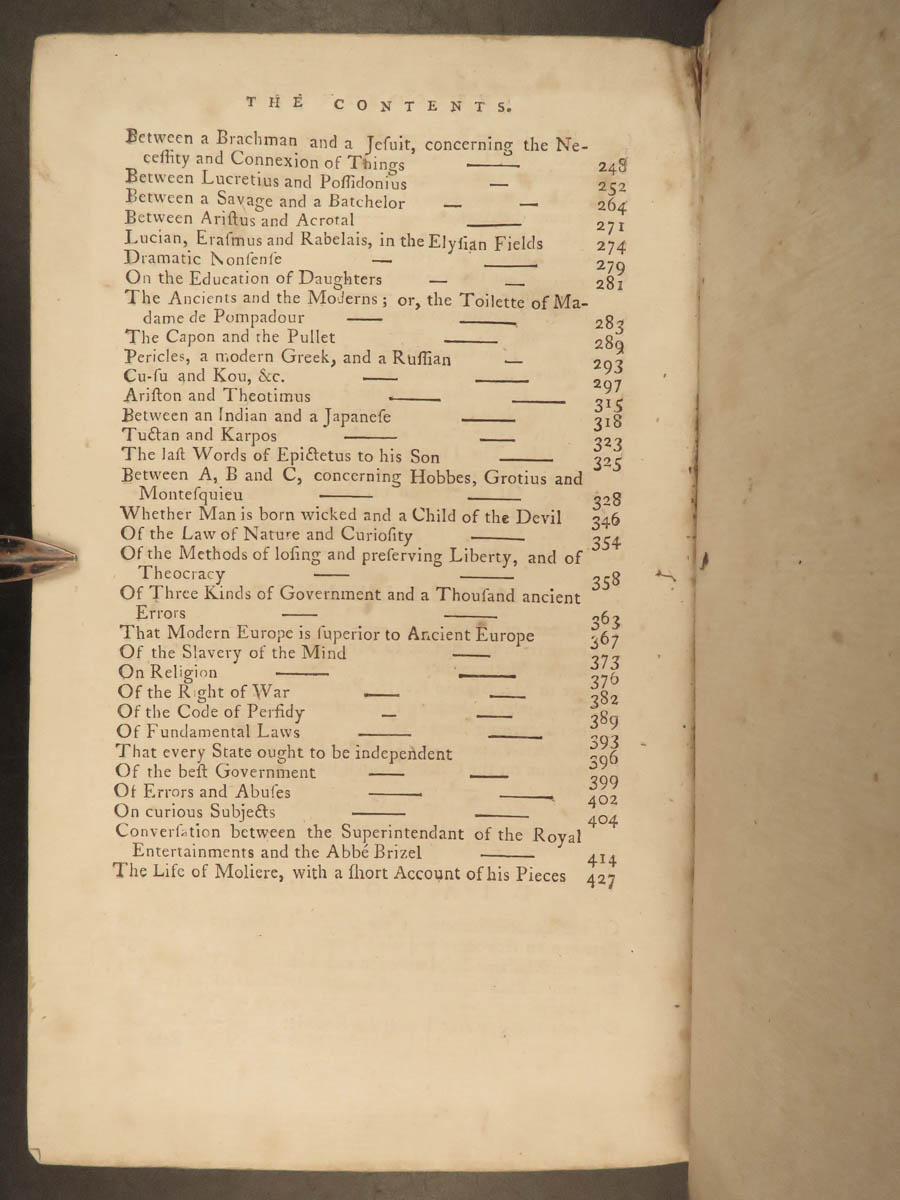 THE CONTENTS.
Between a Brachman and a Jeſuit, concerning the Ne-
ceſſity and Connexion of Things — 248
Between Lucretius and Poſſidonius — 252
Between a Savage and a Batchelor — — 264
Between Ariſtus and Acrotal — 271
Lucian, Eraſmus and Rabelais, in the Elyſian Fields 274
Dramatic Nonſenſe — — 279
On the Education of Daughters — — 281
The Ancients and the Moderns; or, the Toilette of Ma-
dame de Pompadour — — 283
The Capon and the Pullet — 289
Pericles, a modern Greek, and a Ruſſian — 293
Cu-ſu and Kou, &c. — — 297
Ariſton and Theotimus — — 315
Between an Indian and a Japaneſe — 318
Tuctan and Karpos — — 323
The laſt Words of Epictetus to his Son — 325
Between A, B and C, concerning Hobbes, Grotius and
Monteſquieu — — 328
Whether Man is born wicked and a Child of the Devil 346
Of the Law of Nature and Curioſity — 354
Of the Methods of loſing and preſerving Liberty, and of
Theocracy — — 358
Of Three Kinds of Government and a Thouſand ancient
Errors — — 363
That Modern Europe is ſuperior to Ancient Europe 367
Of the Slavery of the Mind — 373
On Religion — — 376
Of the Right of War — — 382
Of the Code of Perfidy — — 389
Of Fundamental Laws — — 393
That every State ought to be independent 396
Of the beſt Government — — 399
Of Errors and Abuſes — — 402
On curious Subjects — — 404
Converſation between the Superintendant of the Royal
Entertainments and the Abbé Brizel — 414
The Life of Moliere, with a ſhort Account of his Pieces 427